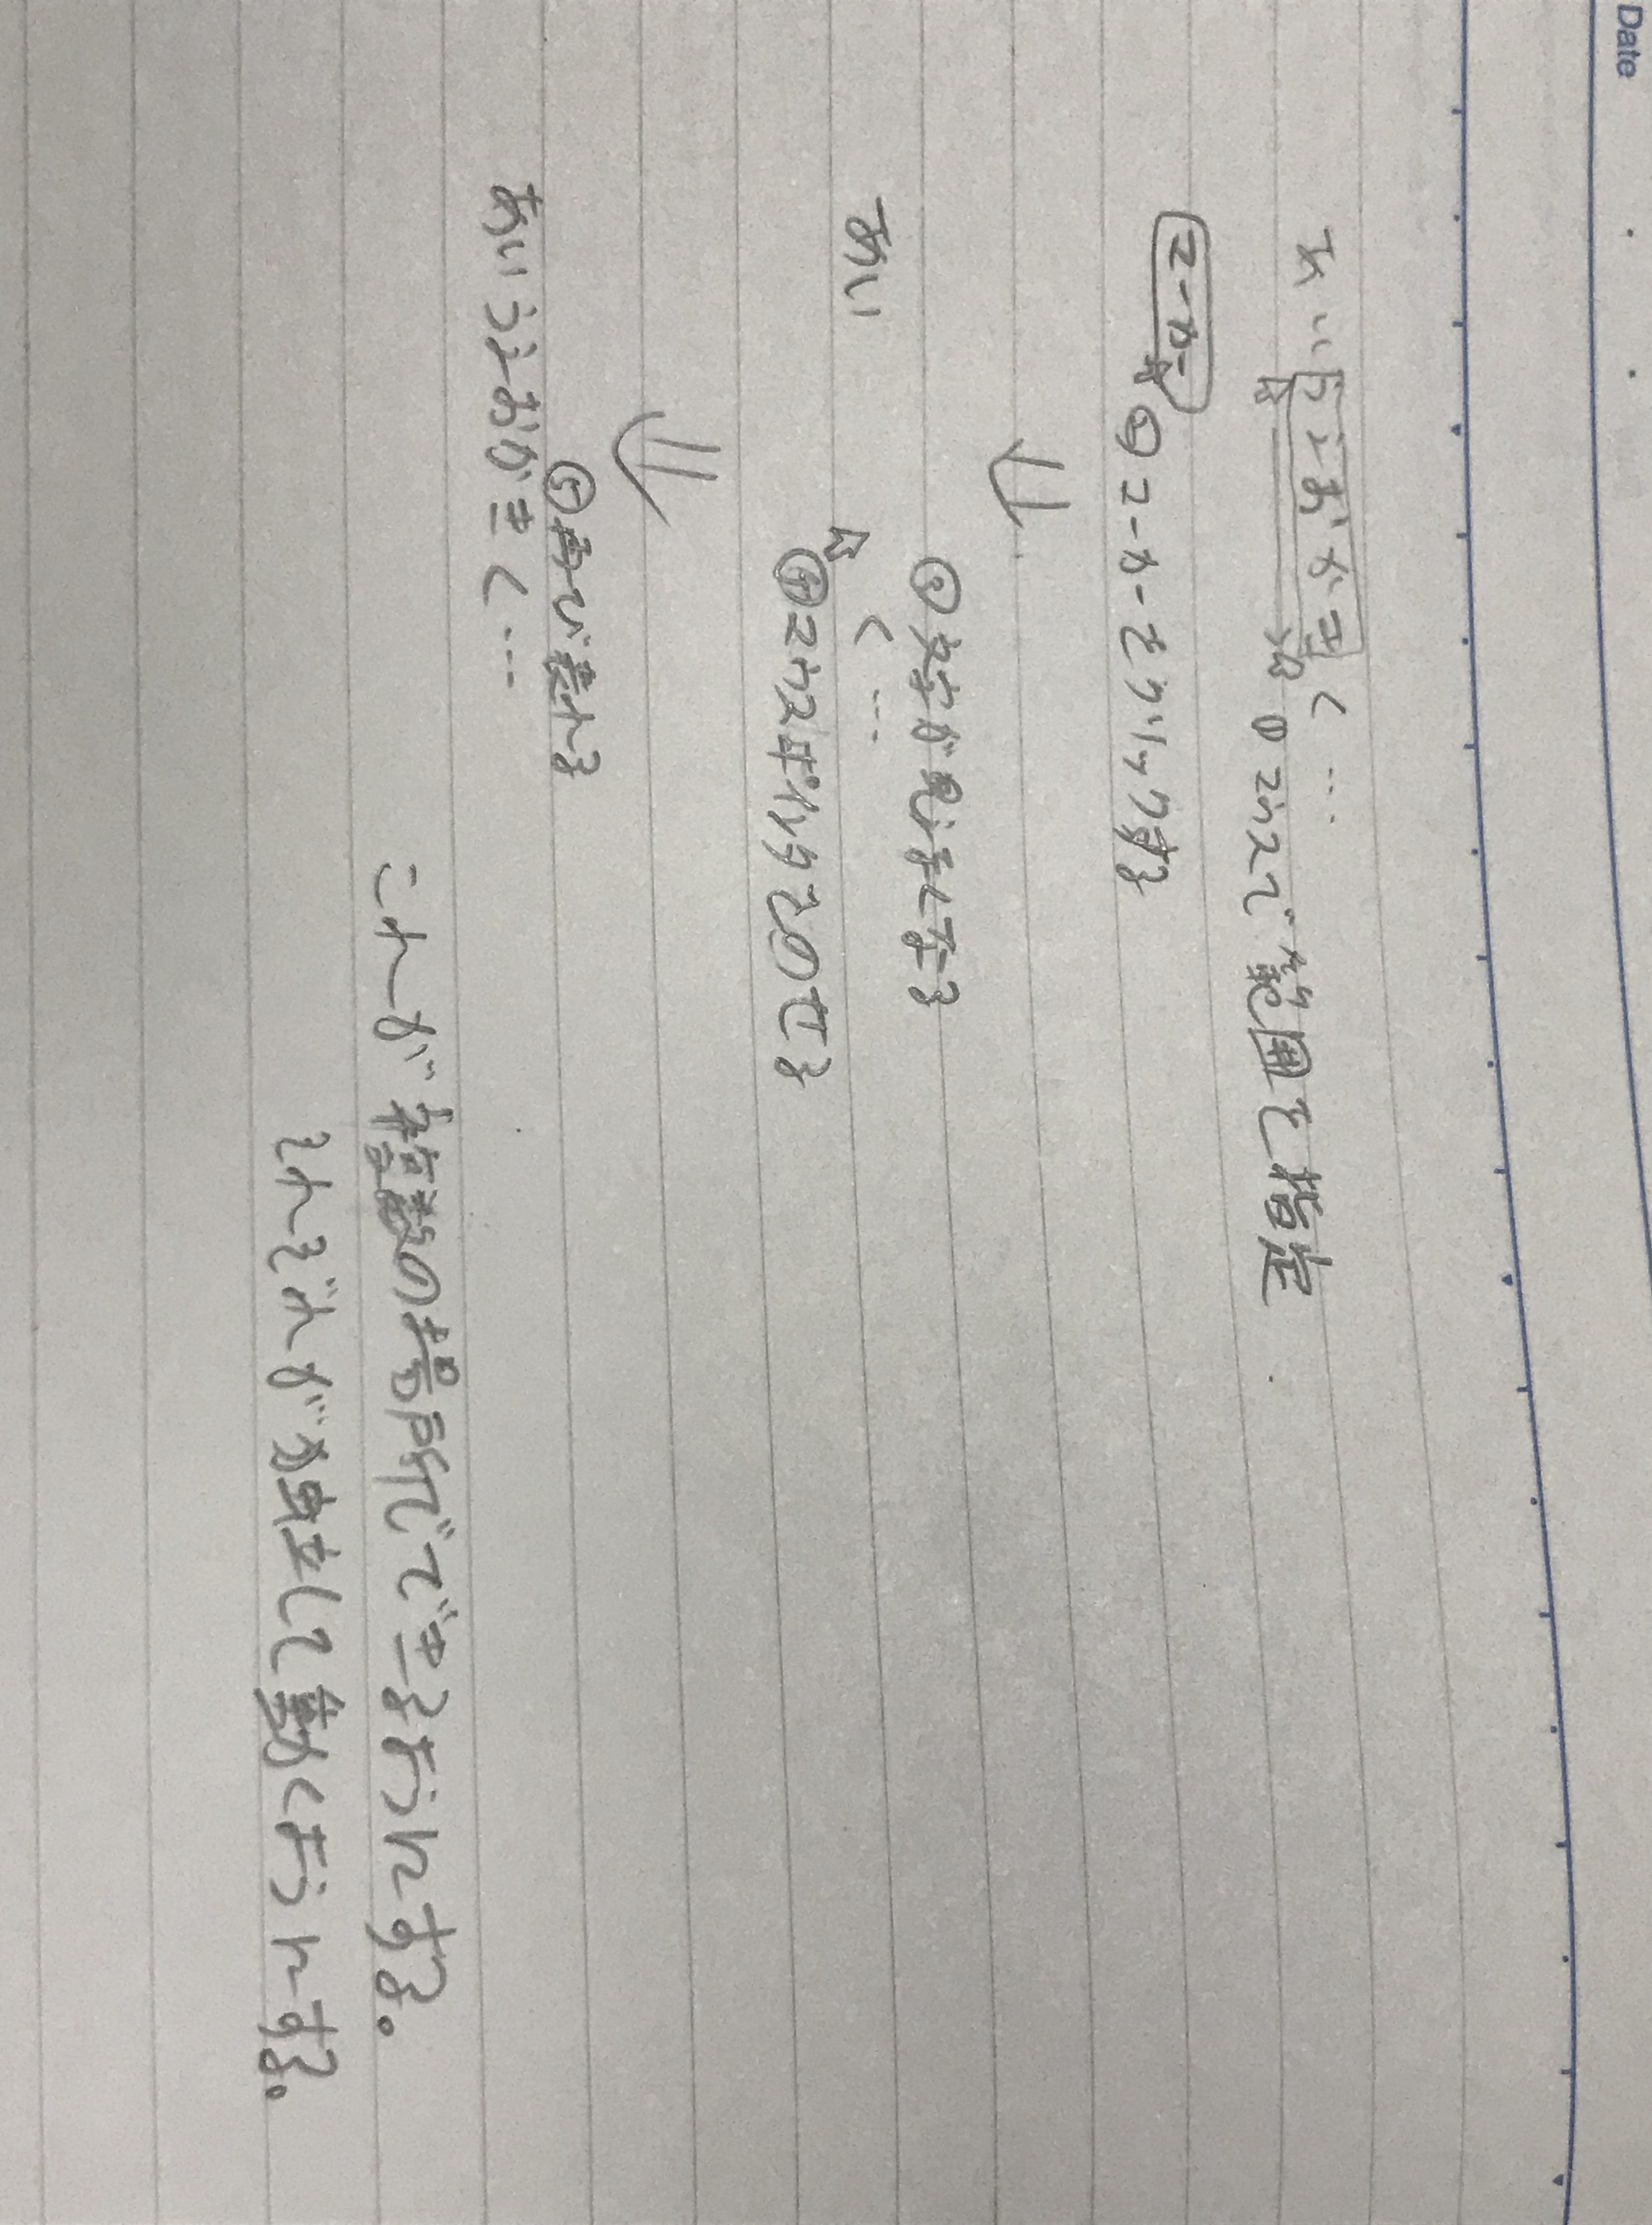 Date
あいうえおかきく…
①マウスで範囲を指定
マーカー
②マーカーをクリックする
③文字が見えなくなる
あい く…
④マウスポインタをのせる
⑤再び表れる
あいうえおかきく…
これが複数の場所でできるようにする。
それぞれが独立して動くようにする。